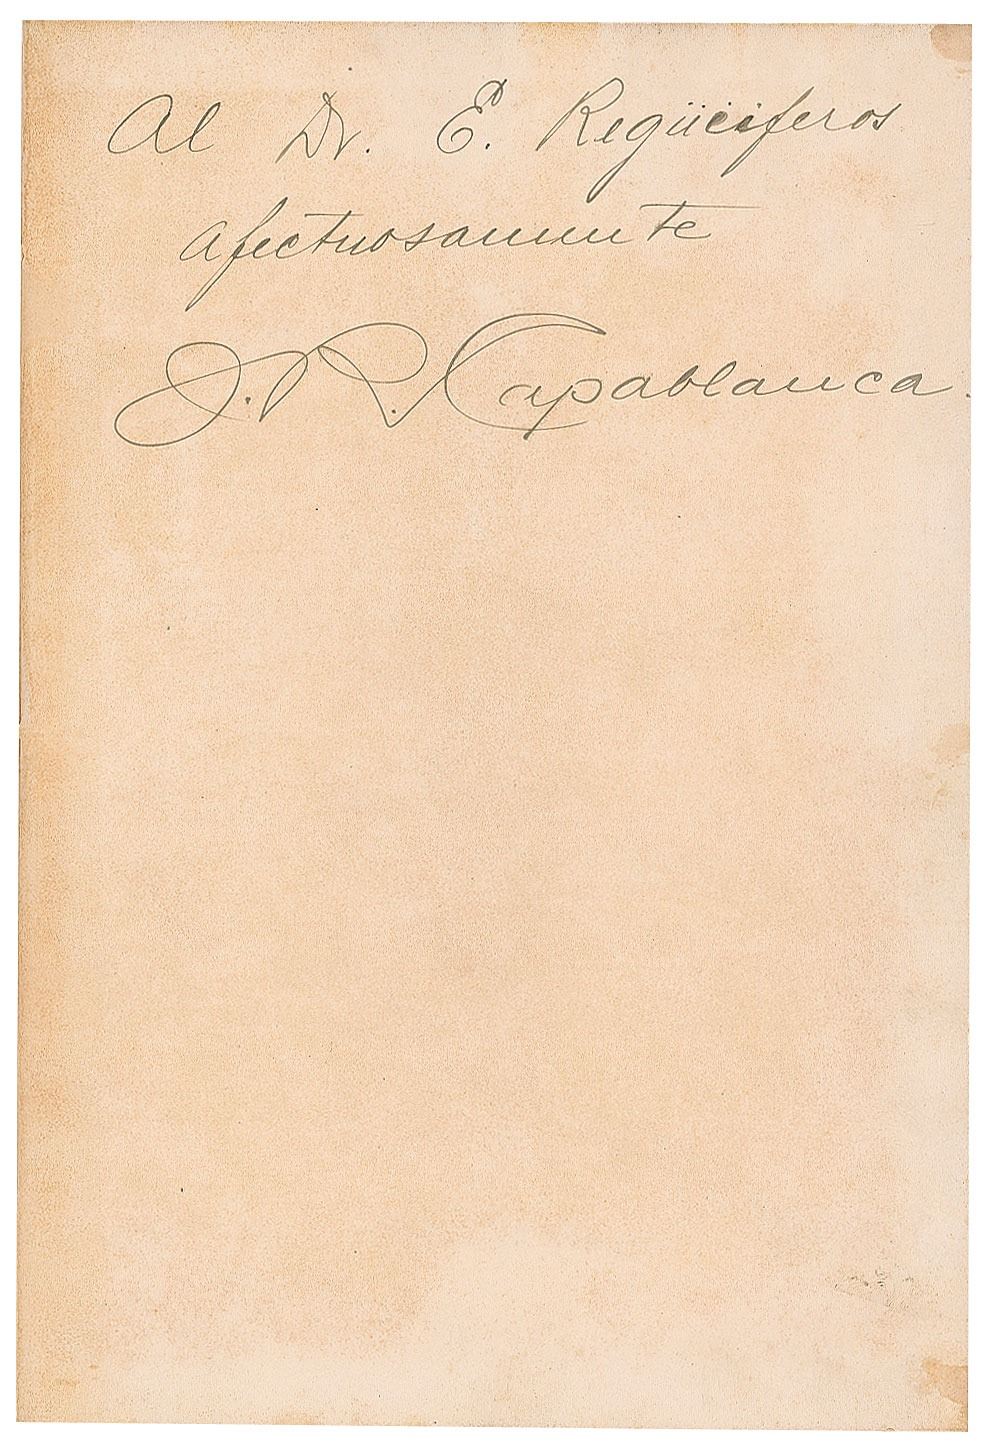 Al Dr. E. Regüeiferos
afectuosamente
J. R. Capablanca.